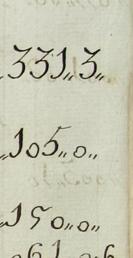 331,,3,,
105,,0,,
150,,0,,